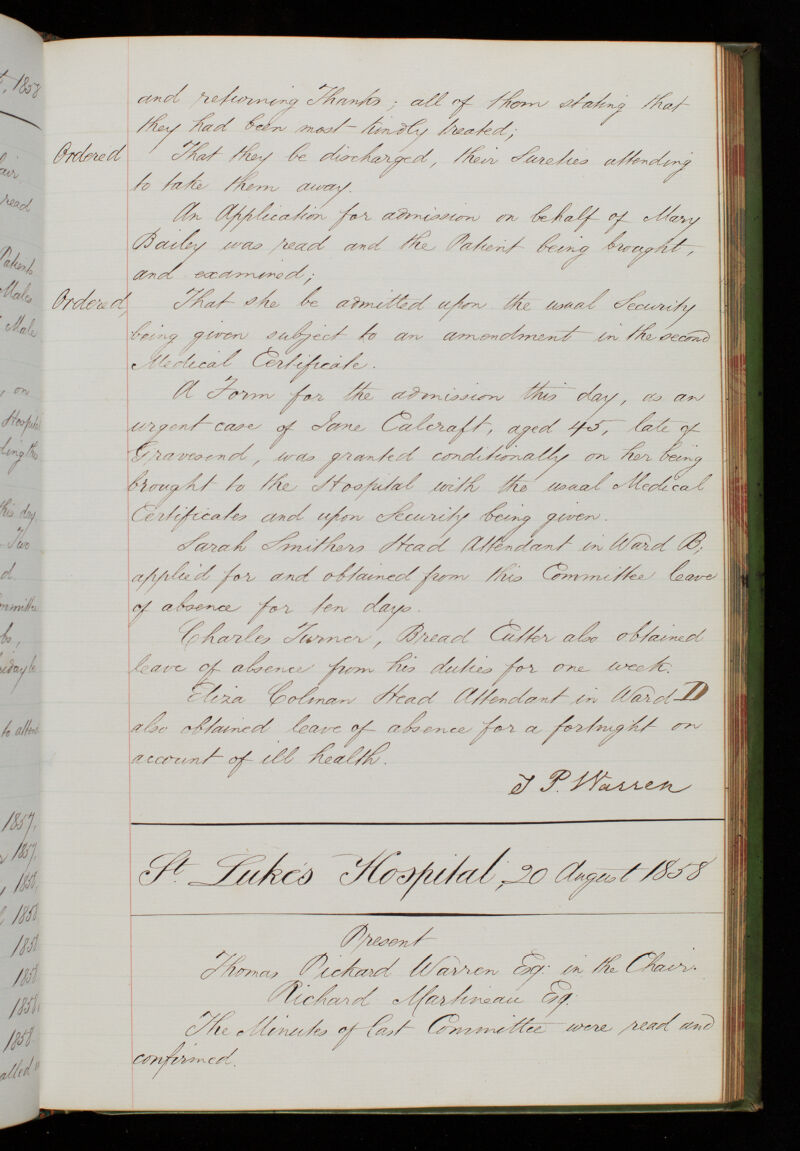 and returning Thanks; all of them stating that
they had been most kindly treated;
Ordered That they be discharged, their Sureties attending
to take them away.
An Application for admission on behalf of Mary
Bailey was read and the Patient being brought,
and examined;
Ordered, That she be admitted upon the usual Security
being given subject to an amendment in the second
Medical Certificate.
A Form for the admission this day, as an
urgent case of Jane Calcraft, aged 45, late of
Gravesend, was granted conditionally on her being
brought to the Hospital with the usual Medical
Certificates and upon Security being given.
Sarah Smithers Head Attendant in Ward B,
applied for and obtained from this Committee leave
of absence for ten days.
Charles Turner, Bread Cutter also obtained
leave of absence from his duties for one week.
Eliza Colman Head Attendant in Ward D
also obtained leave of absence for a fortnight on
account of ill health.
T P. Warren
St. Luke's Hospital, 20 August 1858
Present
Thomas Pickard Warren Esq. in the Chair.
Richard Martineau Esq.
The Minutes of last Committee were read and
confirmed.